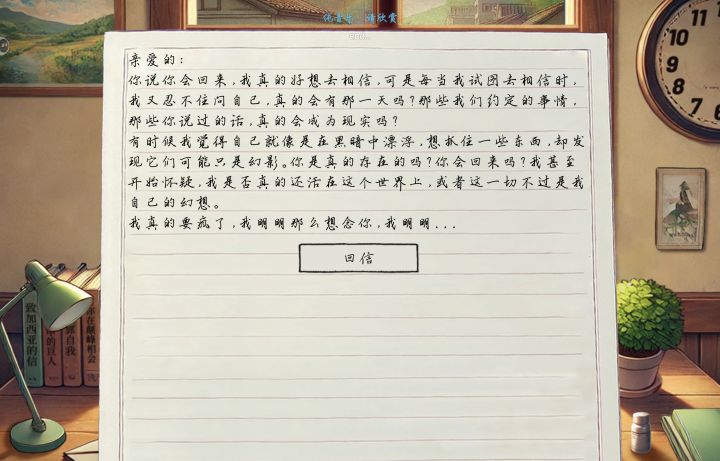 纯音乐，请欣赏
end...
亲爱的：
你说你会回来，我真的好想去相信，可是每当我试图去相信时，
我又忍不住问自己，真的会有那一天吗？那些我们约定的事情，
那些你说过的话，真的会成为现实吗？
有时候我觉得自己就像是在黑暗中漂浮，想抓住一些东西，却发
现它们可能只是幻影。你是真的存在的吗？你会回来吗？我甚至
开始怀疑，我是否真的还活在这个世界上，或者这一切不过是我
自己的幻想。
我真的要疯了，我明明那么想念你，我明明...
回信
致加西亚的信
的巨人
自我
你在巅峰相会
12
11
10
9
8
7